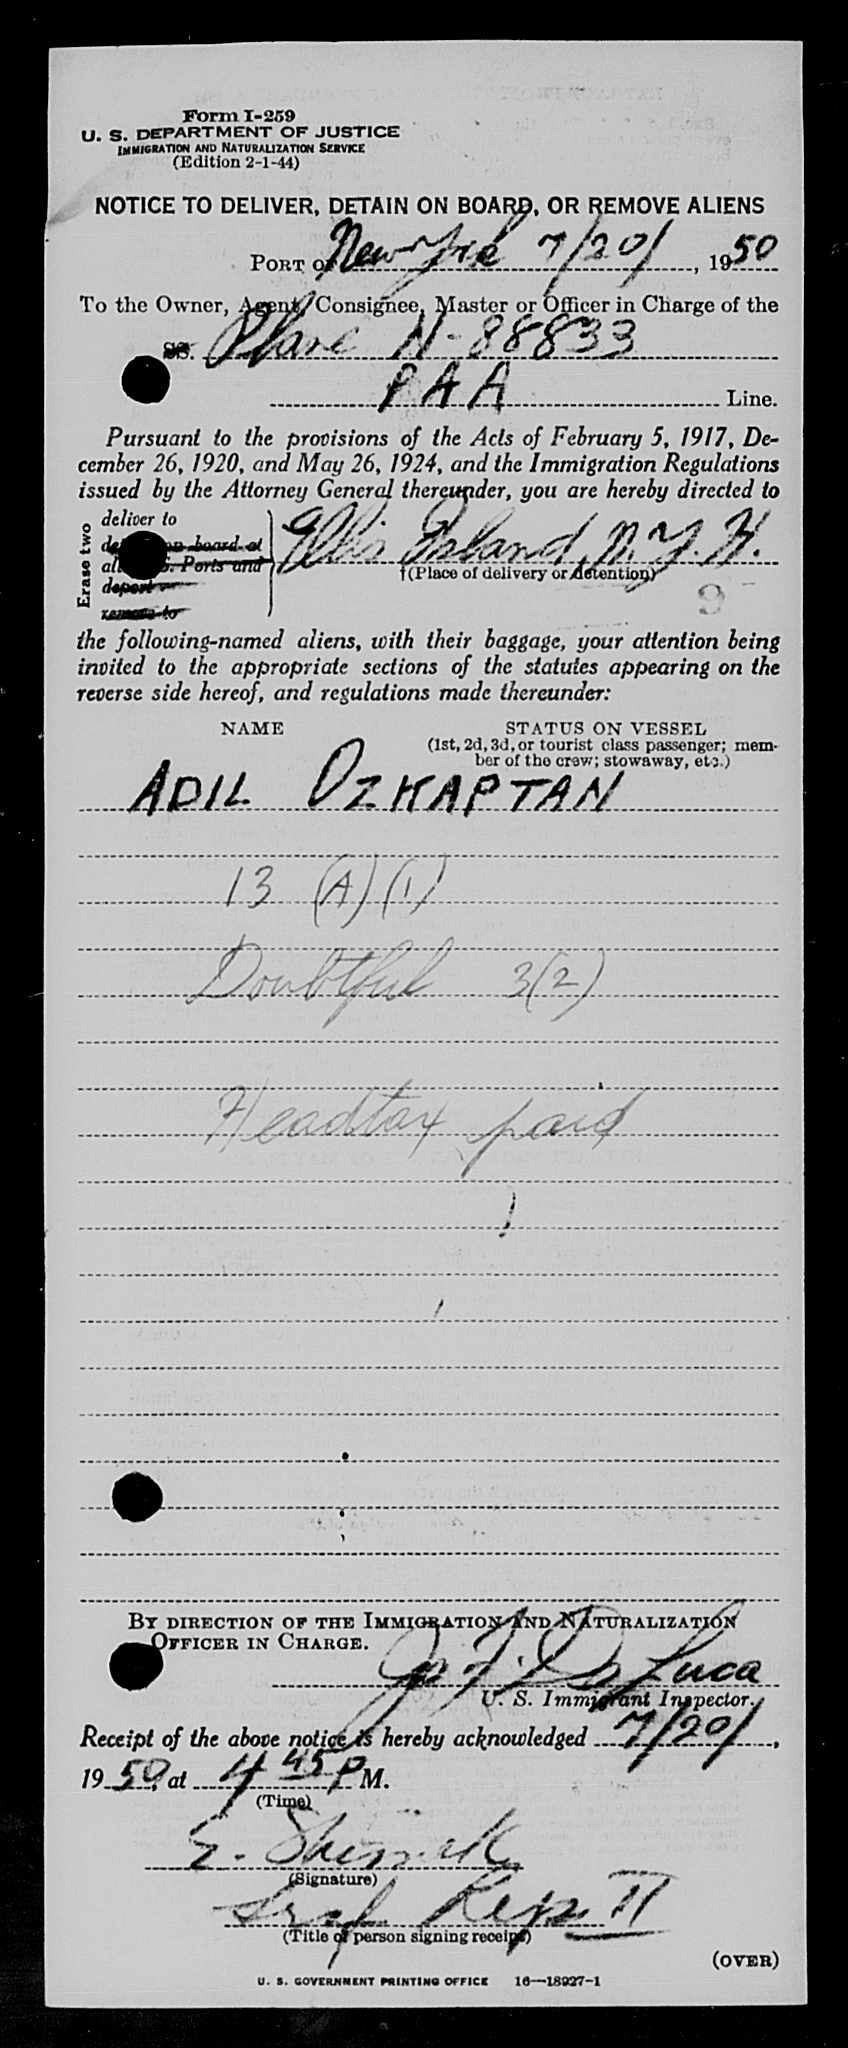 Form I-259
U. S. DEPARTMENT OF JUSTICE
IMMIGRATION AND NATURALIZATION SERVICE
(Edition 2-1-44)
NOTICE TO DELIVER, DETAIN ON BOARD, OR REMOVE ALIENS
PORT OF New York 7/20/, 1950
To the Owner, Agent, Consignee, Master or Officer in Charge of the
SS. Plane N-88833
PAA Line.
Pursuant to the provisions of the Acts of February 5, 1917, De-
cember 26, 1920, and May 26, 1924, and the Immigration Regulations
issued by the Attorney General thereunder, you are hereby directed to
Erase two
deliver to
on board at
Ports and
deport
remove to
Ellis Island, N.Y.H.
†(Place of delivery or detention)
9
the following-named aliens, with their baggage, your attention being
invited to the appropriate sections of the statutes appearing on the
reverse side hereof, and regulations made thereunder:
NAME STATUS ON VESSEL
(1st, 2d, 3d, or tourist class passenger; mem-
ber of the crew; stowaway, etc.)
ADIL OZKAPTAN
13 (A)(1)
Doubtful 3(2)
Headtax paid
BY DIRECTION OF THE IMMIGRATION AND NATURALIZATION
OFFICER IN CHARGE.
F. De Luca
U. S. Immigrant Inspector.
Receipt of the above notice is hereby acknowledged 7/20/,
1950, at 4 45 P M.
(Time)
E.
(Signature)
Rep. II
(Title of person signing receipt)
(OVER)
U. S. GOVERNMENT PRINTING OFFICE 16—18927-1